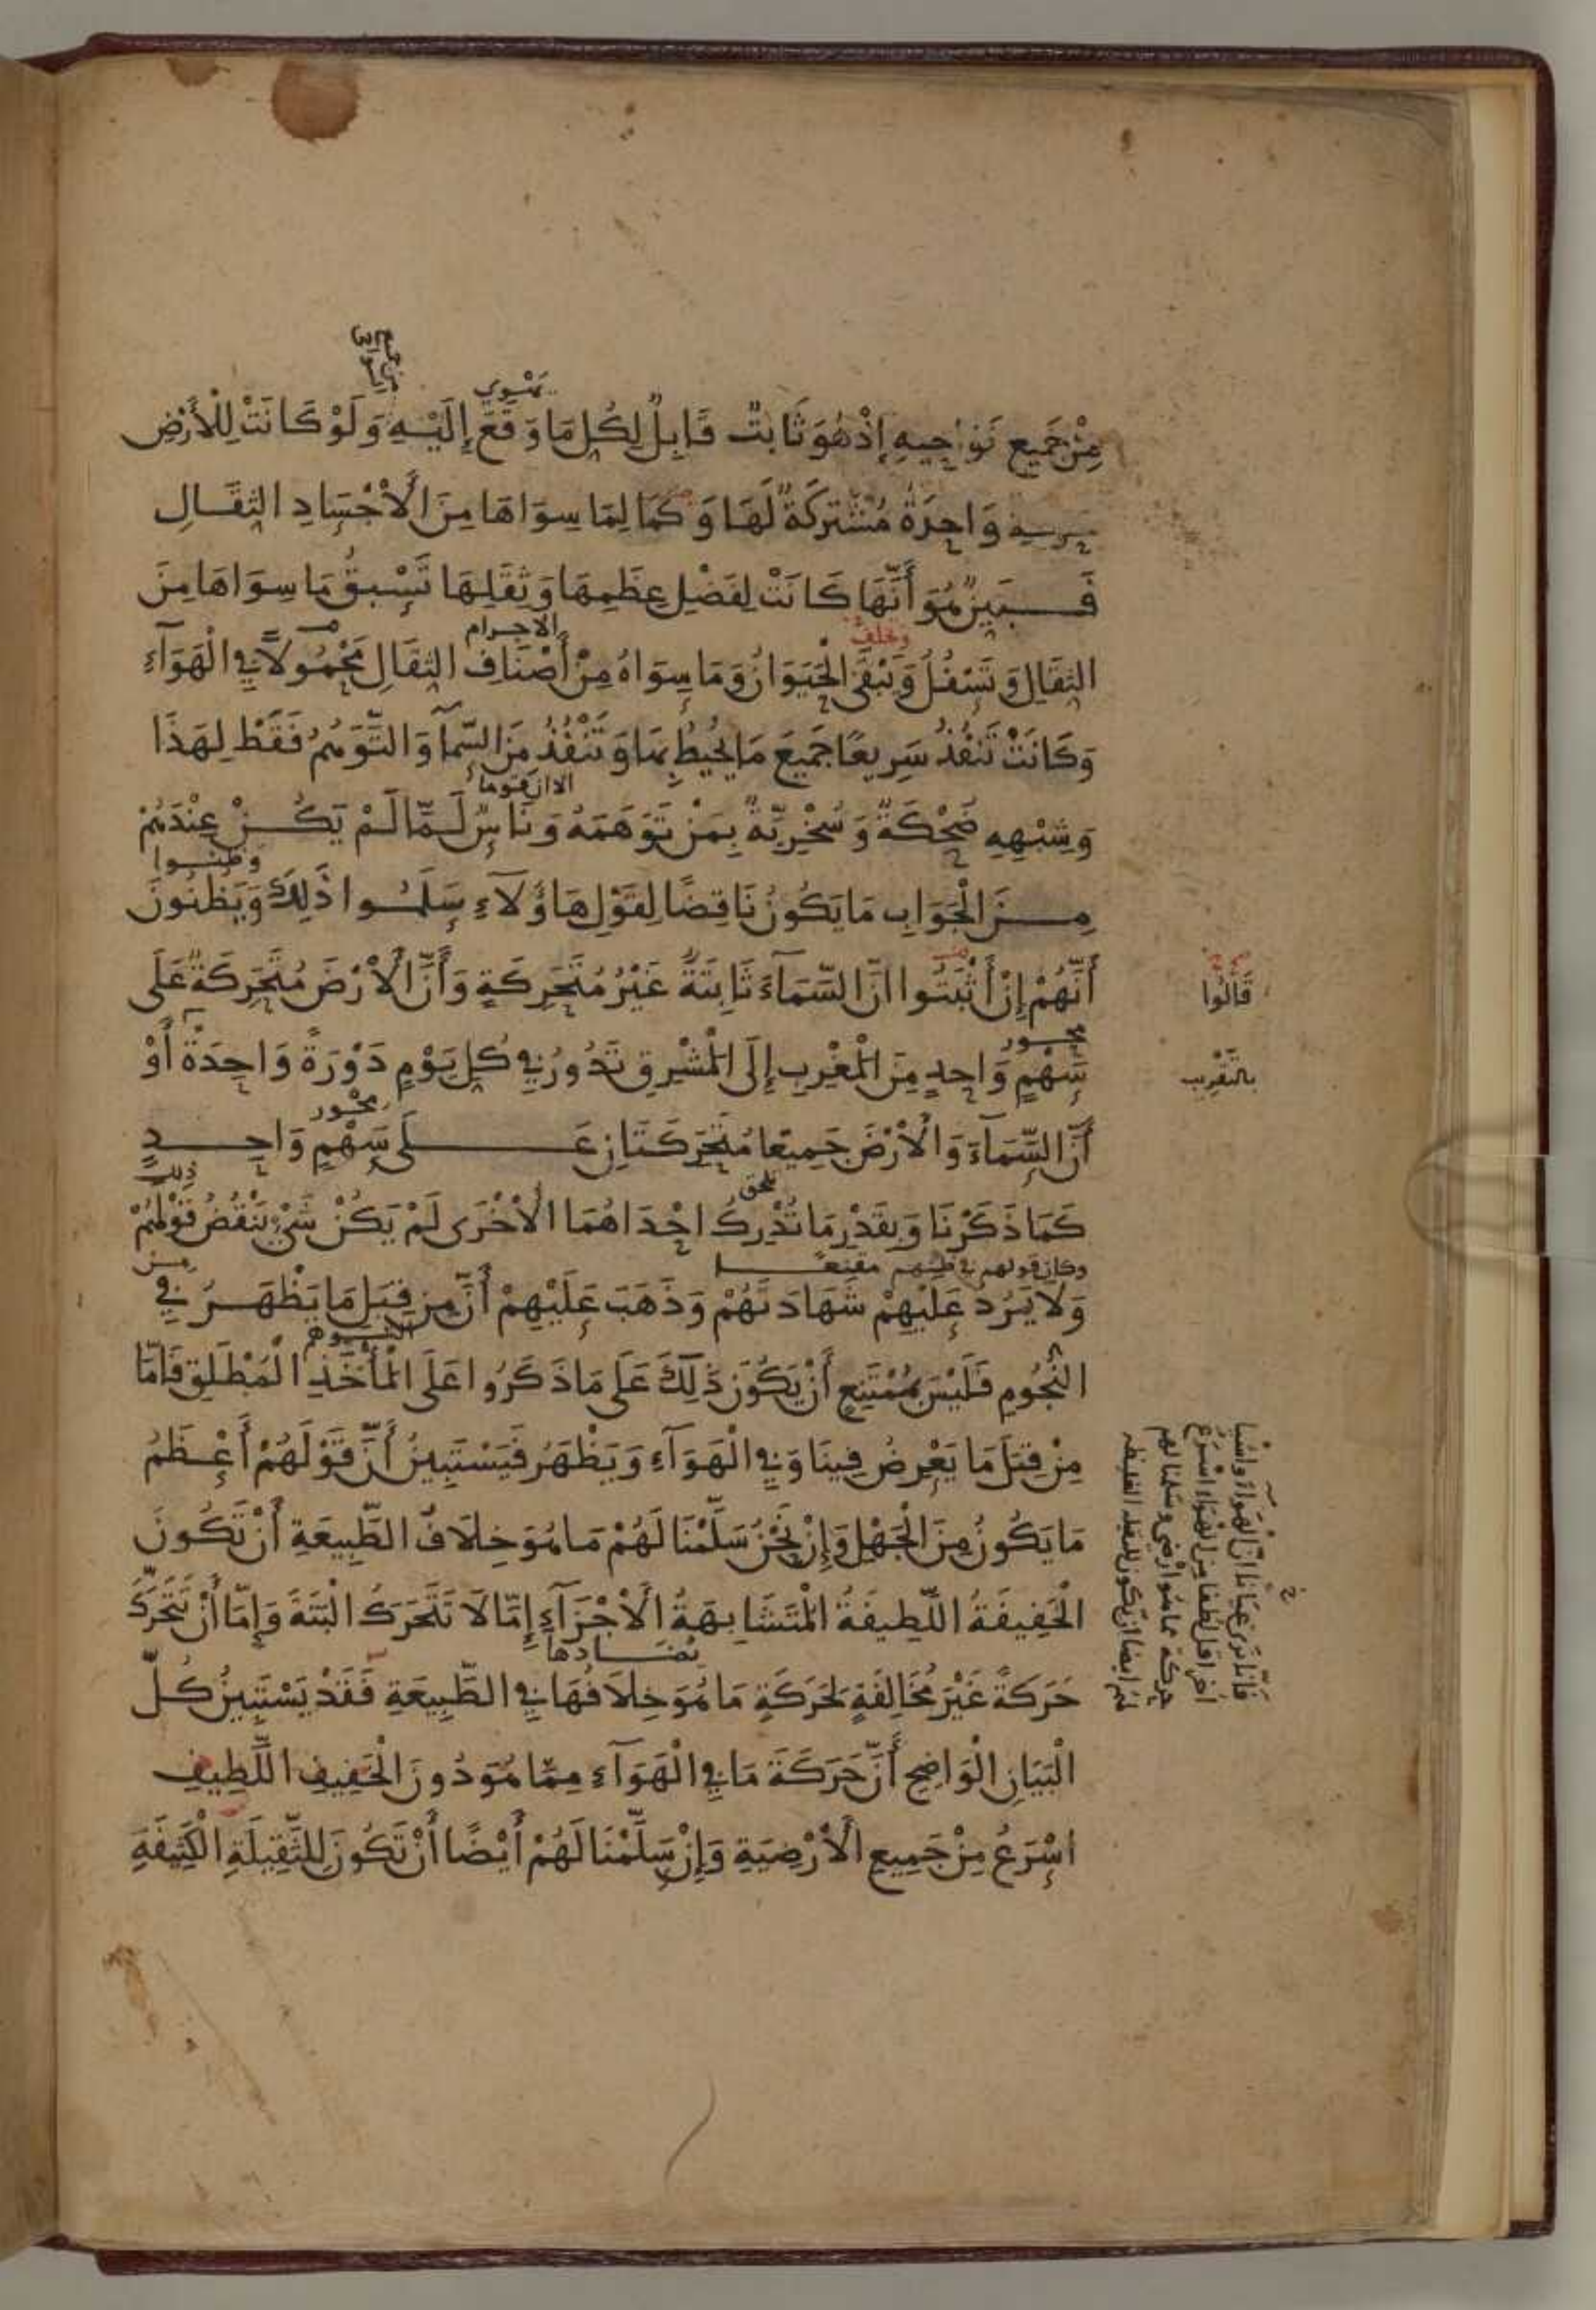 يهوي
مِنْ جَمِيعِ نَوَاحِيهِ إِذْ هُوَ ثَابِتٌ قَابِلٌ لِكُلِ مَا وَقَعَ إِلَيْهِ وَلَوْ كَانَتْ لِلْأَرْضِ
وَاحِدَةٌ مُشْتَرِكَةٌ لَهَا وَكَمَا لِمَا سِوَاهَا مِنَ الْأَجْسَادِ الثِقَالِ
فَبَيِنٌ هُوَ أَنَّهَا كَانَتْ لِفَضْلِ عِظَمِهَا وَثِقَلِهَا تَسْبِقُ مَا سِوَاهَا مِنَ
وتخلف الاجرام
الثِقَالِ وَتَسْفُلُ وَتَبْقَى الْحَيَوَانُ وَمَا سِوَاهُ مِنْ أَصْنَافِ الثِقَالِ مَحْمُولاً فِي الْهَوَآءِ
وَكَانَتْ تَنْفُذُ سَرِيعًا جَمِيعَ مَا يُحِيطُ بِهَا وَتَنْفُذُ مِنَ السَّمآءِ وَالتَّوَهُمُ فَقَطْ لِهَذَا
الا ان قوما
وَشِبْهِهِ ضُحْكَةٌ وَسُخْرِيَّةٌ بِمَنْ تَوَهَمَهُ وَنَاسٌ لَمَّا لَمْ يَكُنْ عِنْدَهُمْ
وظنوا
مِنَ الْجَوَابِ مَا يَكُونُ نَاقِضًا لِقَوْلِ هَاؤُلَآءِ سَلَمُوا ذَلِكَ وَيَظُنُونَ
أَنَّهُمْ إِنْ أَثْبَتُوا انَّ السَّمَآءَ ثَابِتَةٌ غَيْرُ مُتَحَرِكَةٍ وَأَنَّ الْأَرْضَ مُتَحَرِكَةٌ عَلَى
قَالُوا
محور
سَهْمٍ وَاحِدٍ مِنَ الْمَغْرِبِ إِلَى الْمَشْرِقِ تَدُورُ فِي كُلِ يَوْمٍ دَوْرَةً وَاحِدَةً أَوْ
بالتَقْرِيب
محور
أَنَّ السَّمَآءَ وَالْأَرْضَ جَمِيعًا مُتَحَرِكَتَانِ عَلَى سَهْمٍ وَاحِدٍ
تلحق ذلك
كَمَا ذَكَرْنَا وَبِقَدْرِ مَا تُدْرِكُ احْدَاهُمَا الْأُخْرَى لَمْ يَكُنْ شَيْءٌ يَنْقُضُ قَوْلَهُمْ
وكان قولهم في ظنهم مقنعا من
وَلَا يَرُدُ عَلَيْهِمْ شَهَادَتَهُمْ وَذَهَبَ عَلَيْهِمْ أَنَّ مِنْ قِبَلِ مَا يَظْهَرُ فِي
النُجُومِ فَلَيْسَ بِمُمْتَنِعٍ أَنْ يَكُونَ ذَلِكَ عَلَى مَا ذَكَرُوا عَلَى الْمَأْخَذِ الْمُطْلَقِ فَامَّا
مِنْ قِبَلِ مَا يَعْرِضُ فِينَا وَفِي الْهَوَآءِ وَيَظْهَرُ فَيَسْتَبِينُ أَنَّ قَوْلَهُمْ أَعْظَمُ
مَا يَكُونُ مِنَ الْجَهْلِ وَإِنْ نَحْنُ سَلَّمْنَا لَهُمْ مَا هُوَ خِلَافُ الطَّبِيعَةِ أَنْ تَكُونَ
الْخَفِيفَةُ اللَّطِيفَةُ الْمُتَشَابِهَةُ الْأَجْزَآءِ إِمَّا لَا تَتَحَرَكُ الْبَتَةَ وَإِمَّا أَنْ تَتَحَرَّكَ
تضادها
حَرَكَةً غَيْرَ مُخَالِفَةٍ لِحَرَكَةِ مَا هُوَ خِلَافُهَا فِي الطَّبِيعَةِ فَقَدْ يَسْتَبِينُ كُلَّ
الْبَيَانِ الْوَاضِحِ أَنَّ حَرَكَةَ مَا فِي الْهَوَآءِ مِمَّا هُوَ دُونَ الْخَفِيفِ اللَّطِيفِ
اسْرَعُ مِنْ جَمِيعِ الْأَرْضِيَةِ وَإِنْ سَلَّمْنَا لَهُمْ أَيْضًا أَنْ تَكُونَ لِلثَّقِيلَةِ الْكَثِيفَةِ
فَانّا نَرَى عَيَانًا انَّ الْهَوَاءَ وَاشْيَا
أخر اقل لطفا من الهَوَاءِ اسْرَعُ
حركة مما هُوَ ارْضي وسَلمنا لهم